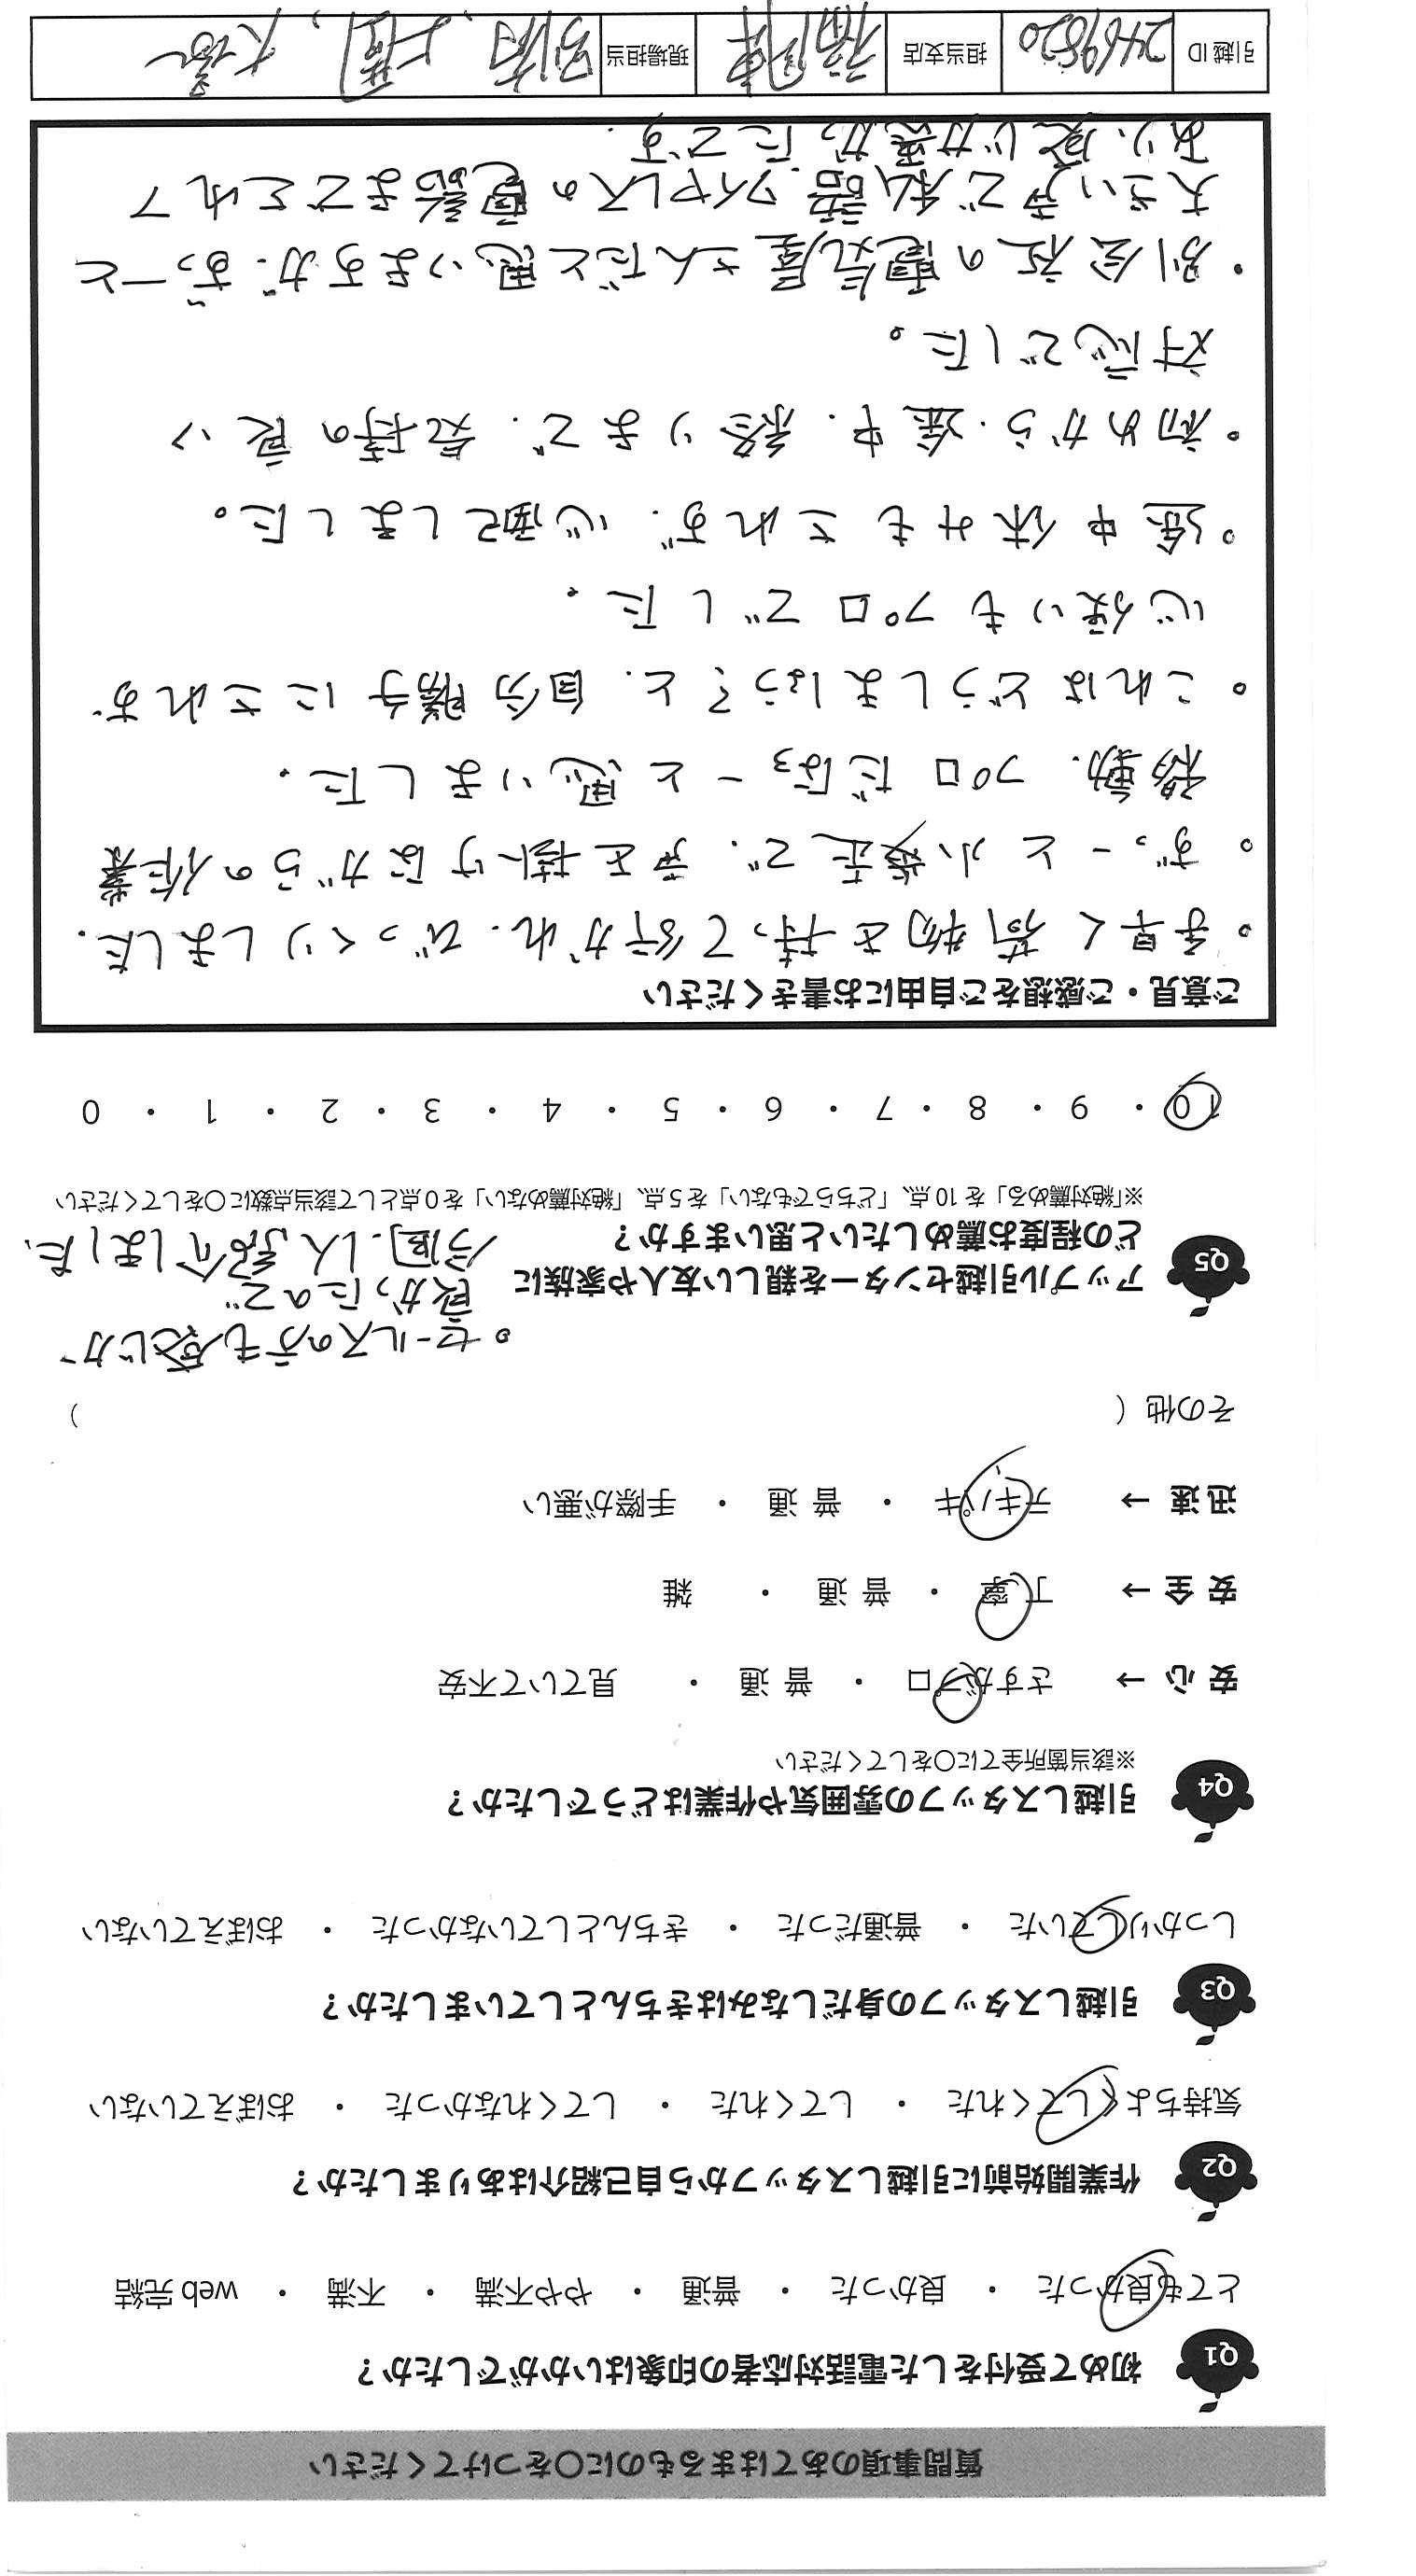 質問事項のあてはまるものに〇をつけてください
Q1 初めて受付をした電話対応者の印象はいかがでしたか？
とても良かった ・ 良かった ・ 普通 ・ やや不満 ・ 不満 ・ web 完結
Q2 作業開始前に引越しスタッフから自己紹介はありましたか？
気持ちよくしてくれた ・ してくれた ・ してくれなかった ・ おぼえていない
Q3 引越しスタッフの身だしなみはきちんとしていましたか？
しっかりしていた ・ 普通だった ・ きちんとしていなかった ・ おぼえていない
Q4 引越しスタッフの雰囲気や作業はどうでしたか？
※該当箇所全てに〇をしてください
安 心 → さすがプロ ・ 普 通 ・ 見ていて不安
安 全 → 丁 寧 ・ 普 通 ・ 雑
迅 速 → テキパキ ・ 普 通 ・ 手際が悪い
その他（ ）
。セールスの方も感じが
良かったので
Q5 アップル引越センターを親しい友人や家族に
どの程度お薦めしたいと思いますか？
今回.1人紹介しました、
※「絶対薦める」を 10 点、「どちらでもない」を 5 点、「絶対薦めない」を 0 点として該当点数に〇をしてください
10 ・ 9 ・ 8 ・ 7 ・ 6 ・ 5 ・ 4 ・ 3 ・ 2 ・ 1 ・ 0
ご意見・ご感想をご自由にお書きください
。手早く荷物を持って行かれ.びっくりしました.
。ずっーと小走で.声を掛けながらの作業
移動.プロだなぁーと思いました.
。これはどうしましょう？と.自分勝手にされず
心使いもプロでした.
。途中休みもされず.心配しました。
。初めから.途中.終りまで.気持の良い
対応でした。
・別会社の電気屋さんだと思いますが.ずっーと
大きい声で私語.ワイヤレスの電話までされて
あり.感じが悪かったです.
引越 ID 2469820 担当支店 現場担当